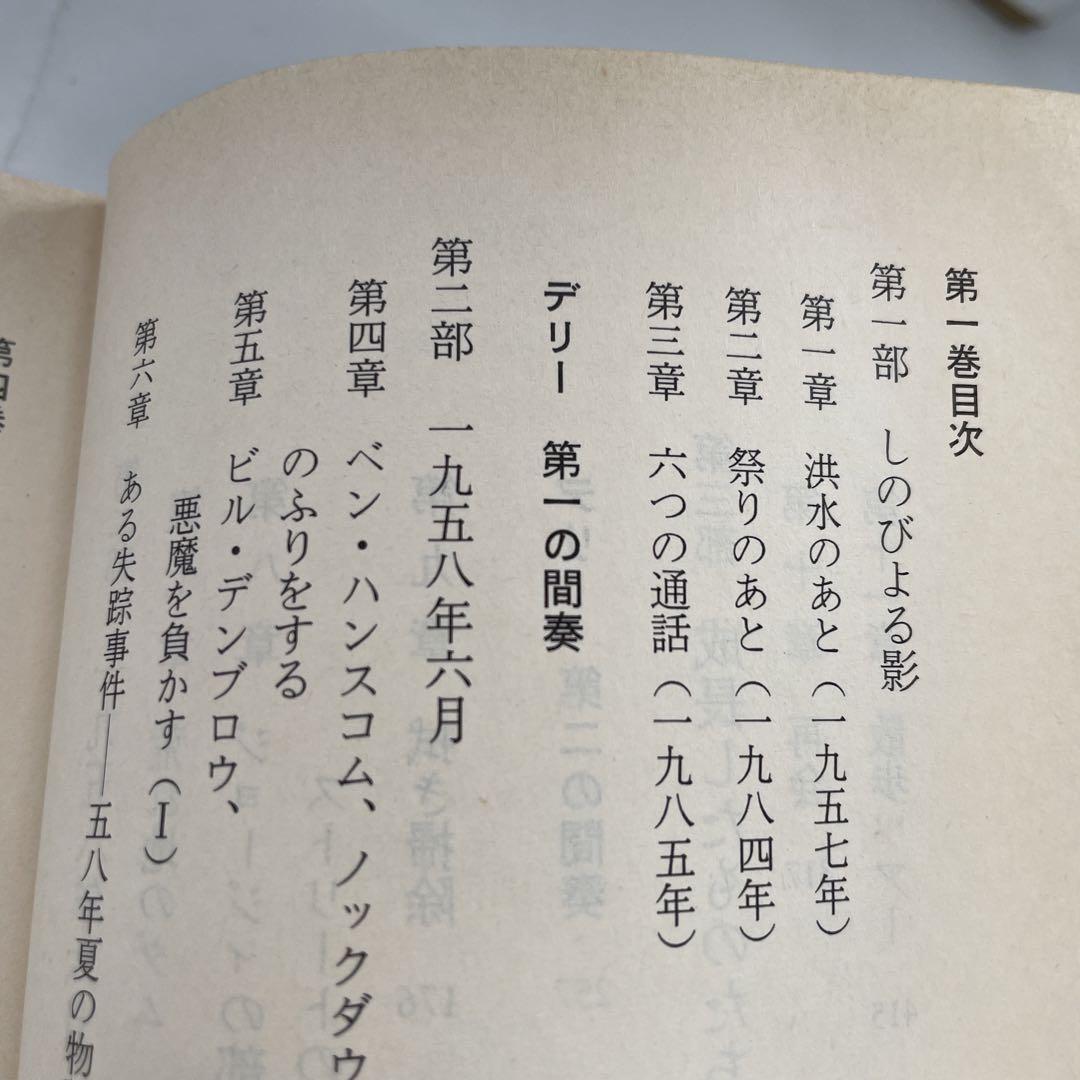 第一巻目次
第一部 しのびよる影
第一章 洪水のあと（一九五七年）
第二章 祭りのあと（一九八四年）
第三章 六つの通話（一九八五年）
デリー 第一の間奏
第二部 一九五八年六月
第四章 ベン・ハンスコム、ノックダウ
のふりをする
第五章 ビル・デンブロウ、
悪魔を負かす（Ⅰ）
第六章 ある失踪事件──五八年夏の物